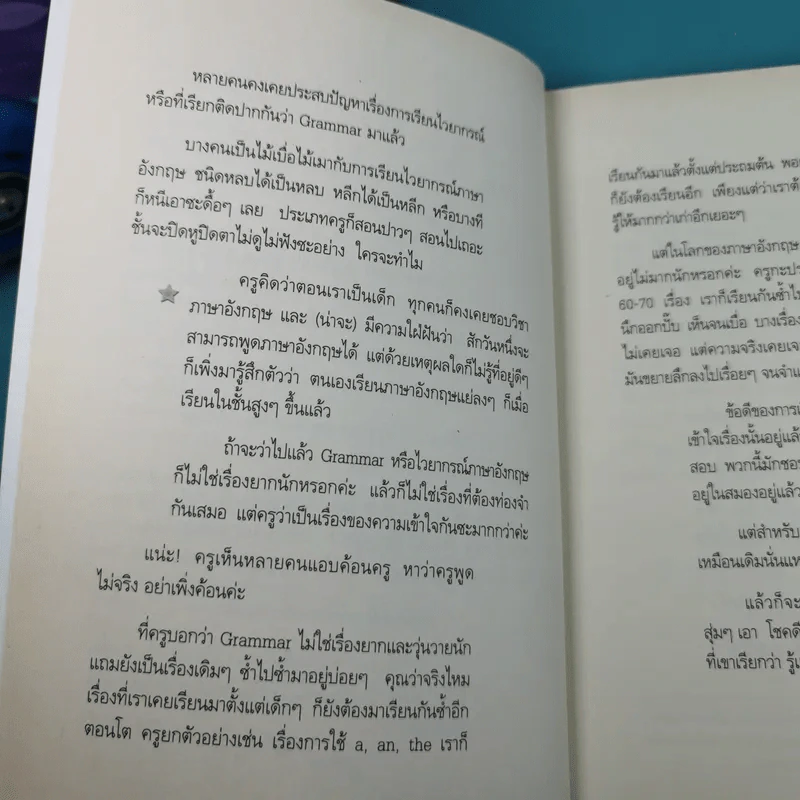 หลายคนคงเคยประสบปัญหาเรื่องการเรียนไวยากรณ์
หรือที่เรียกติดปากกันว่า Grammar มาแล้ว
บางคนเป็นไม้เบื่อไม้เมากับการเรียนไวยากรณ์ภาษา
อังกฤษ ชนิดหลบได้เป็นหลบ หลีกได้เป็นหลีก หรือบางที
ก็หนีเอาซะดื้อๆ เลย ประเภทครูก็สอนปาวๆ สอนไปเถอะ
ชั้นจะปิดหูปิดตาไม่ดูไม่ฟังซะอย่าง ใครจะทำไม
ครูคิดว่าตอนเราเป็นเด็ก ทุกคนก็คงเคยชอบวิชา
ภาษาอังกฤษ และ (น่าจะ) มีความใฝ่ฝันว่า สักวันหนึ่งจะ
สามารถพูดภาษาอังกฤษได้ แต่ด้วยเหตุผลใดก็ไม่รู้ที่อยู่ดีๆ
ก็เพิ่งมารู้สึกตัวว่า ตนเองเรียนภาษาอังกฤษแย่ลงๆ ก็เมื่อ
เรียนในชั้นสูงๆ ขึ้นแล้ว
ถ้าจะว่าไปแล้ว Grammar หรือไวยากรณ์ภาษาอังกฤษ
ก็ไม่ใช่เรื่องยากนักหรอกค่ะ แล้วก็ไม่ใช่เรื่องที่ต้องท่องจำ
กันเสมอ แต่ครูว่าเป็นเรื่องของความเข้าใจกันซะมากกว่าค่ะ
แน่ะ! ครูเห็นหลายคนแอบค้อนครู หาว่าครูพูด
ไม่จริง อย่าเพิ่งค้อนค่ะ
ที่ครูบอกว่า Grammar ไม่ใช่เรื่องยากและวุ่นวายนัก
แถมยังเป็นเรื่องเดิมๆ ซ้ำไปซ้ำมาอยู่บ่อยๆ คุณว่าจริงไหม
เรื่องที่เราเคยเรียนมาตั้งแต่เด็กๆ ก็ยังต้องมาเรียนกันซ้ำอีก
ตอนโต ครูยกตัวอย่างเช่น เรื่องการใช้ a, an, the เราก็
เรียนกันมาแล้วตั้งแต่ประถมต้น พอ
ก็ยังต้องเรียนอีก เพียงแต่ว่าเราต้
รู้ให้มากกว่าเก่าอีกเยอะๆ
แต่ในโลกของภาษาอังกฤษ
อยู่ไม่มากนักหรอกค่ะ ครูกะประ
60-70 เรื่อง เราก็เรียนกันซ้ำไป
นึกออกปั๊บ เห็นจนเบื่อ บางเรื่อง
ไม่เคยเจอ แต่ความจริงเคยเจ
มันขยายลึกลงไปเรื่อยๆ จนจำแ
ข้อดีของการเ
เข้าใจเรื่องนั้นอยู่แล้
สอบ พวกนี้มักชอบ
อยู่ในสมองอยู่แล้ว
แต่สำหรับ
เหมือนเดิมนั่นแห
แล้วก็จะ
สุ่มๆ เอา โชคดี
ที่เขาเรียกว่า รู้เ